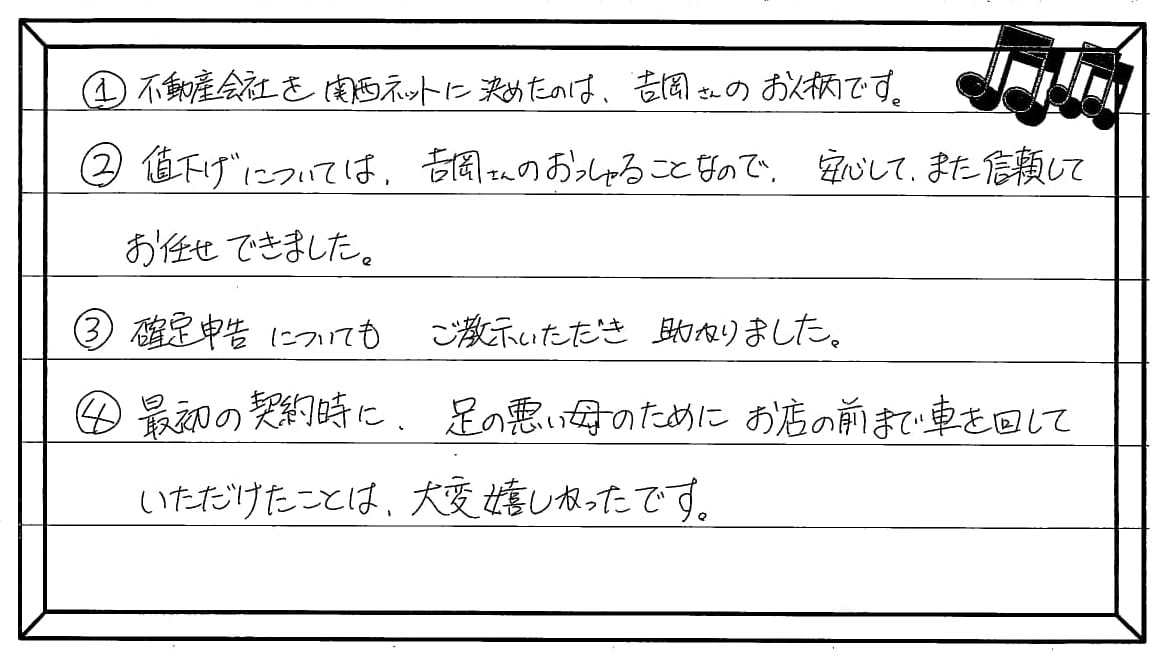 ① 不動産会社を関西ネットに決めたのは、吉岡さんのお人柄です。
② 値下げについては、吉岡さんのおっしゃることなので、安心して、また信頼して
お任せできました。
③ 確定申告についても ご教示いただき 助かりました。
④ 最初の契約時に、足の悪い母のために お店の前まで車を回して
いただけたことは、大変嬉しかったです。